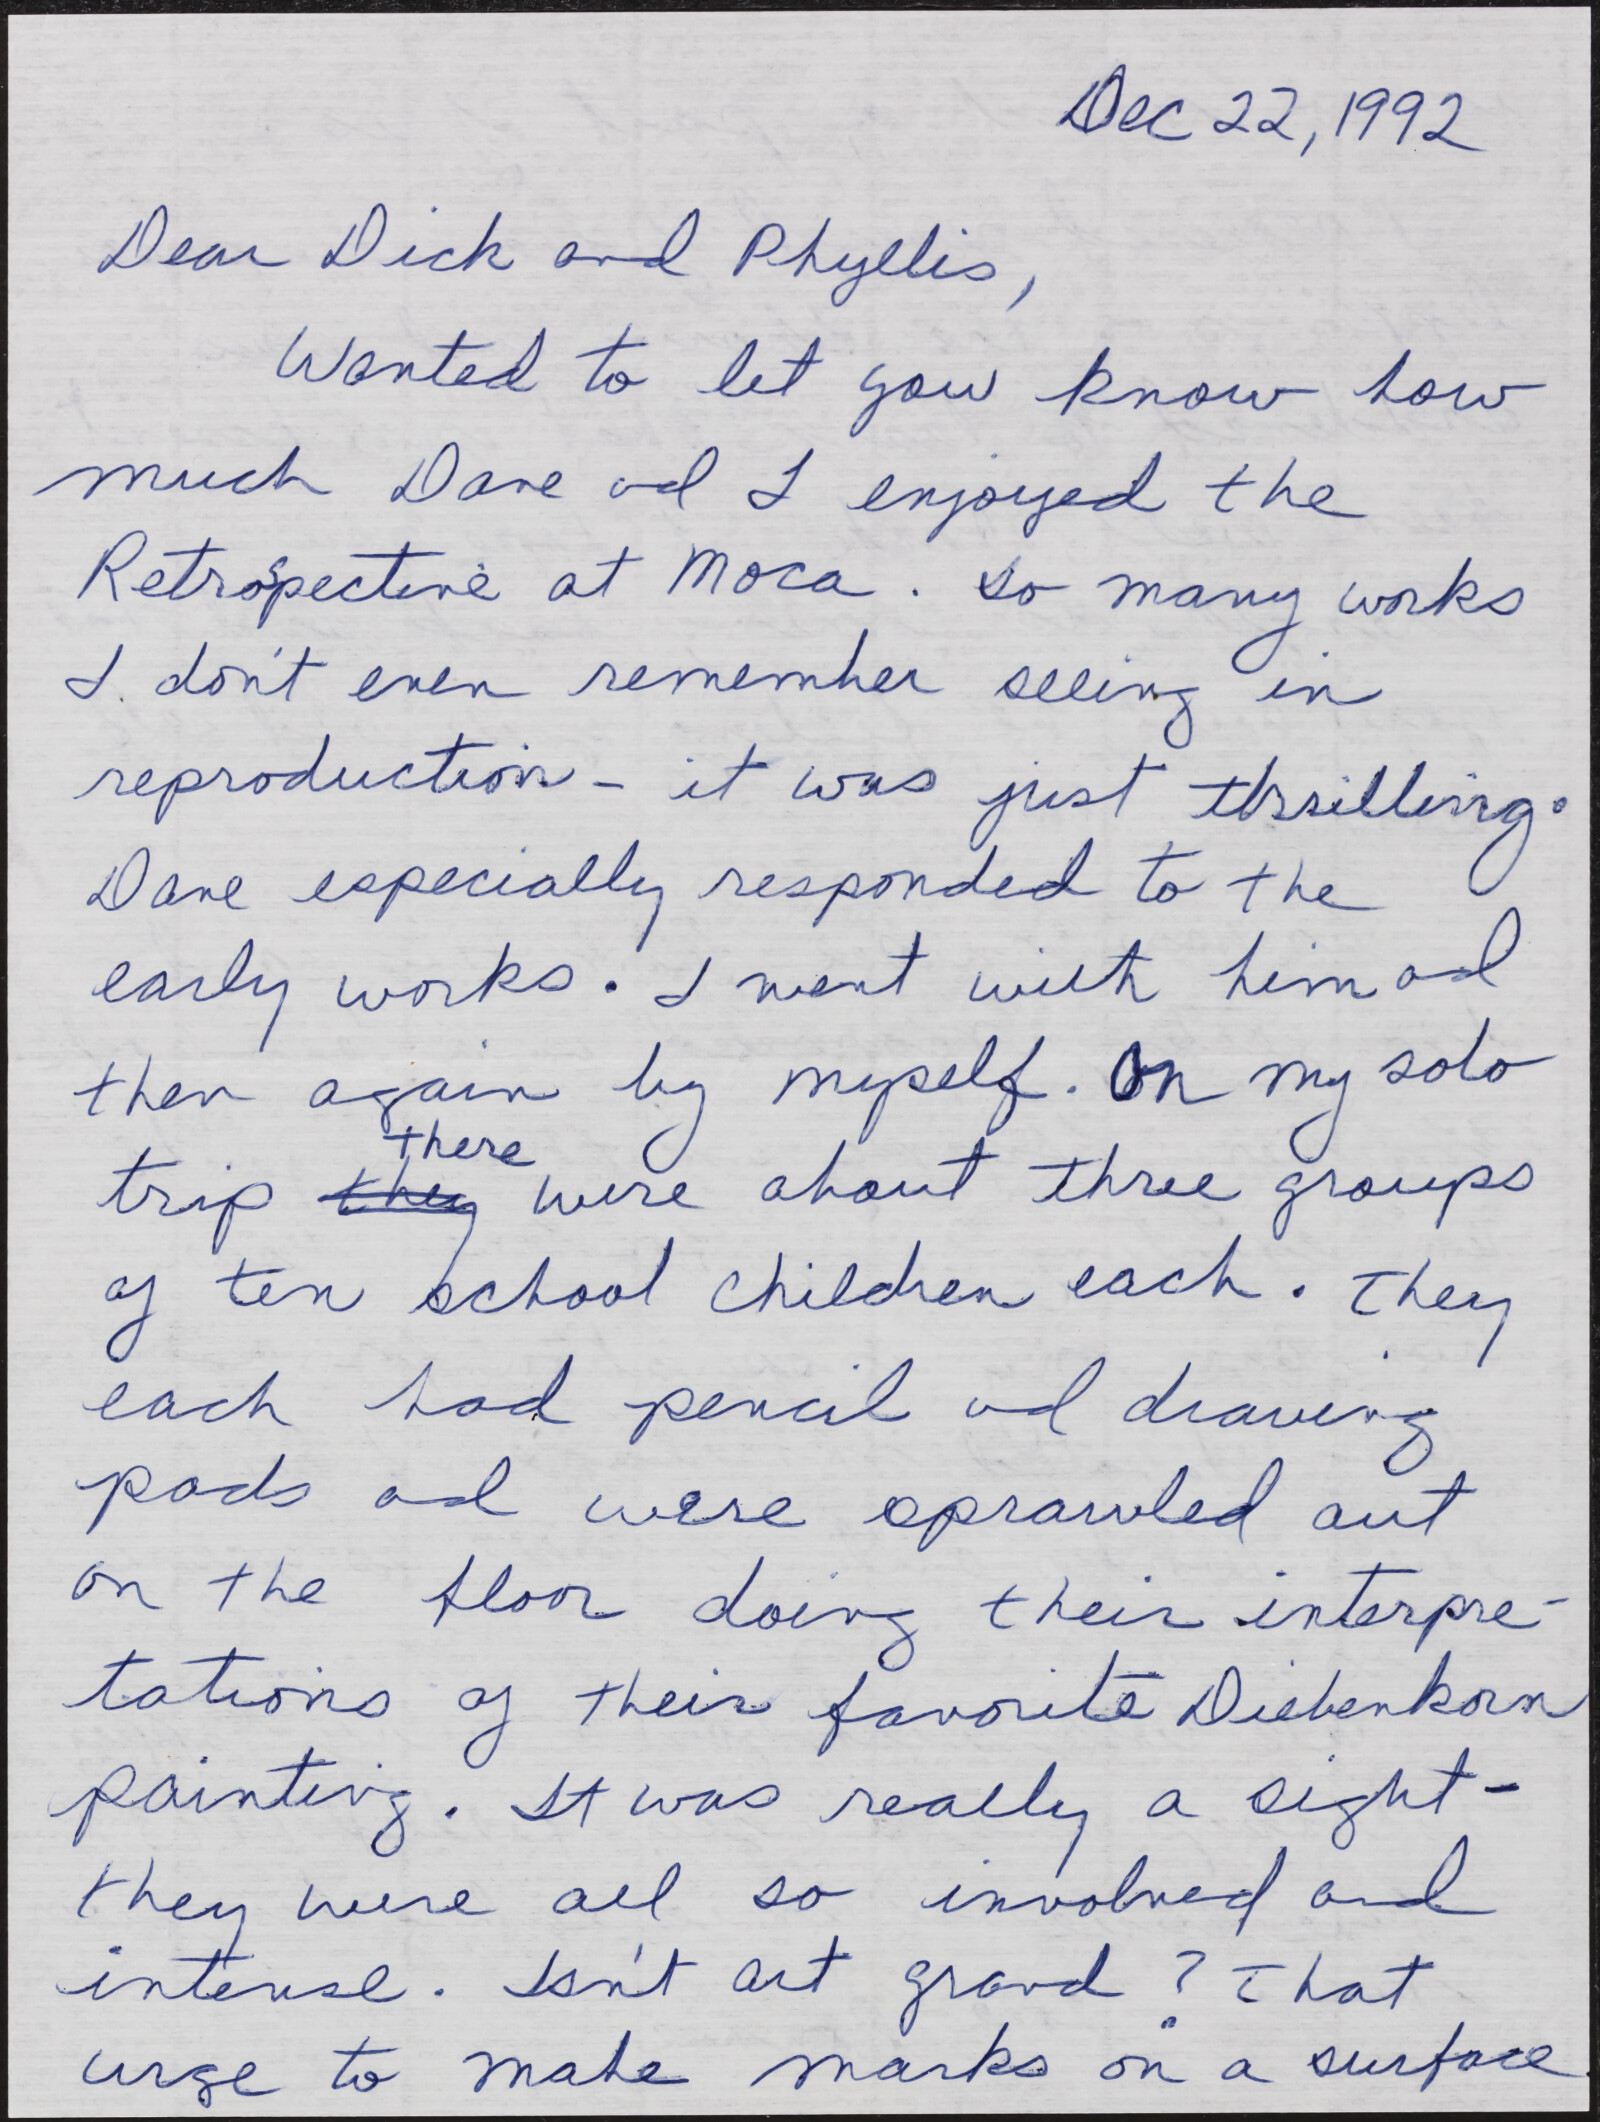 Dec 22, 1992
Dear Dick and Phyllis,
Wanted to let you know how
much Dave and I enjoyed the
Retrospective at Moca. So many works
I don't even remember seeing in
reproduction - it was just thrilling.
Dave especially responded to the
early works. I went with him and
then again by myself. On my solo
there
trip they were about three groups
of ten school children each. They
each had pencil and drawing
pads and were sprawled out
on the floor doing their interpre-
tations of their favorite Diebenkorn
painting. It was really a sight -
they were all so involved and
intense. Isn't art grand? That
urge to make marks on a surface